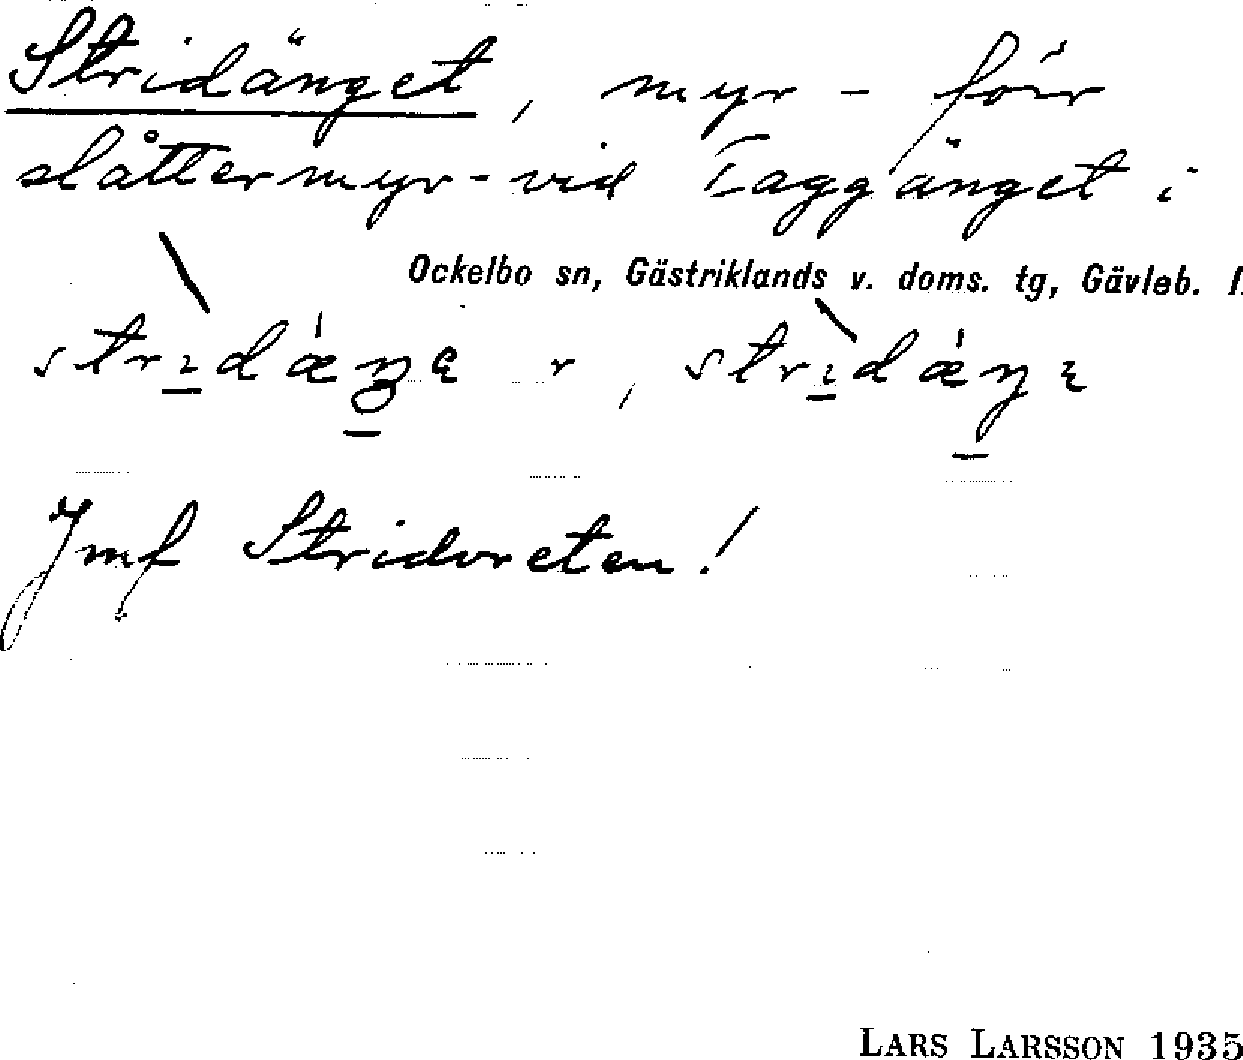 Stridänget, myr - förr
slåttermyr - vid Taggänget i
Ockelbo sn, Gästriklands v. doms. tg, Gävleb. l.
Jmf Stridvreten!
LARS LARSSON 1935